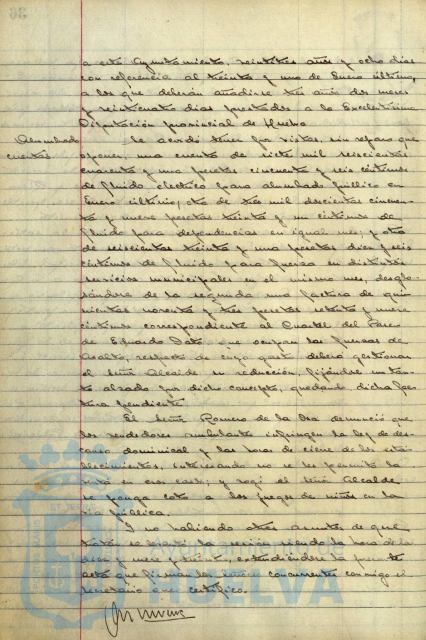 a este Ayuntamiento, veintitres años y ocho dias
con referencia al treinta y uno de Enero último,
a los que deberán añadirse tres años dos meses
y veinticuatro dias prestados a la Excelentísima
Diputación provincial de Huelva
Alumbrado
cuentas.
Se acordó tener por vistas, sin reparo que
oponer, una cuenta de siete mil seiscientas
cuarenta y una pesetas cincuenta y seis céntimos
de fluido eléctrico para alumbrado público en
Enero último; otra de tres mil doscientas cincuen-
ta y nueve pesetas treinta y un céntimos de
fluido para dependencias en igual mes; y otra
de seiscientas treinta y una pesetas diez y seis
céntimos de fluido para fuerza en distintos
servicios municipales en el mismo mes, desglo-
sándose de la segunda una factura de qui-
nientas noventa y tres pesetas setenta y nueve
céntimos correspondiente al Cuartel del Paseo
de Eduardo Dato que ocupan las fuerzas de
Asalto, respecto de cuyo gasto deberá gestionar
el Señor Alcalde su reducción, fijándose un tan-
to alzado por dicho concepto, quedando dicha fac-
tura pendiente
El Señor Romero de la Osa denunció que
los vendedores ambulantes infringen la ley de des-
canso dominical y las horas de cierre de los esta-
blecimientos, interesando no se les permita la
venta en esos casos; y rogó al Señor Alcalde
se ponga coto a los juegos de niños en la
vía pública.
Y no habiendo otros asuntos de que
tratar se levantó la sesión siendo la hora de las
diez y nueve y treinta, extendiéndose la presente
acta que firman los señores concurrentes conmigo el
Secretario que certifico.
HUELVA